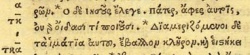 ρῶν. * Ο δὲ ἰησοῦς ἔλεγε. πάτερ, ἄφες αὐτοῖς,
οὐ γὰρ οἴδασι τί ποιοῦσι. * Διαμεριζόμενοι δὲ
τὰ ἱμάτια αὐτοῦ, ἔβαλλον κλῆρον. καὶ